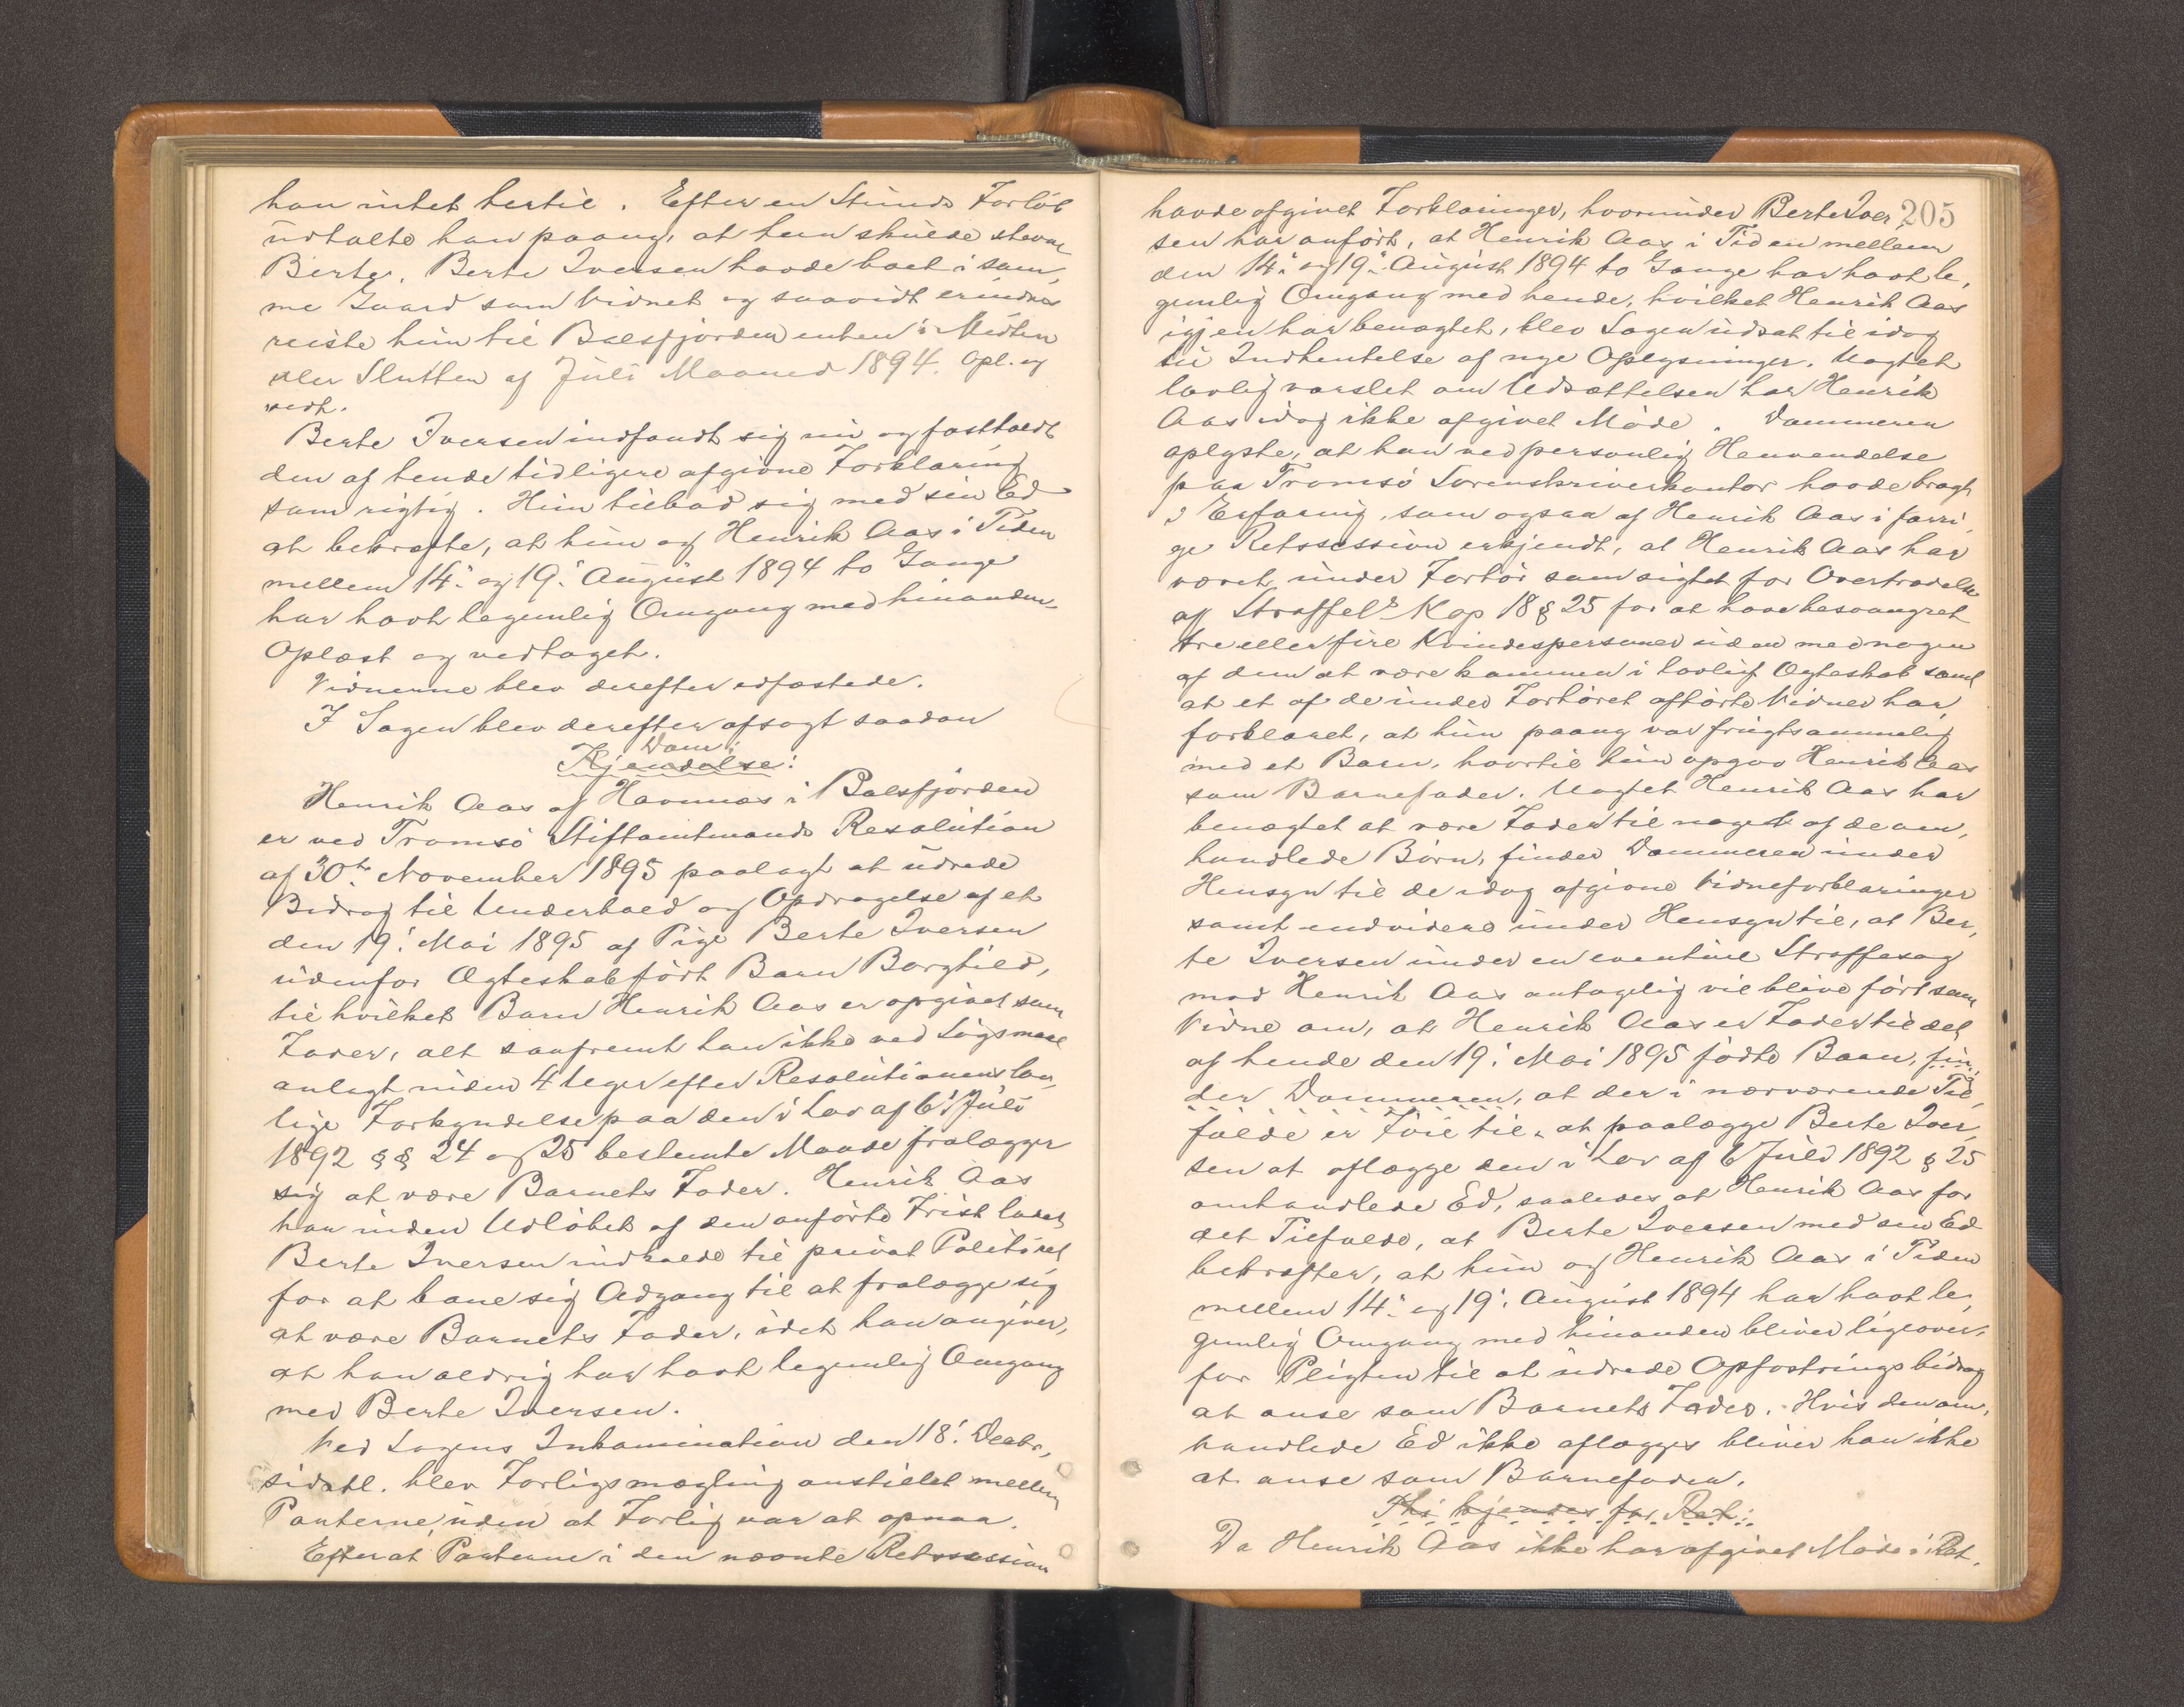 han intet hertil. Efter en Stunds Forløb
udtalte han paany, at han skulde stevne
Berte. Berte Iversen havde boet i sam,
me Gaard som Vidnet og saavidt erindres
reiste hun til Balsfjorden enten i Midten
eller Slutten af Juli Maaned 1894. Opl. og
vedt.
Berte Iversen indfandt sig nu og fastholdt
den af hende tidligere afgivne Forklaring
som rigtig. Hun tilbød sig med sin Ed
at bekræfte, at hun og Henrik Aas i Tiden
mellem 14. og 19. August 1894 to Gange
har havt legemlig Omgang med hinanden.
Oplæst og vedtaget.
Vidnerne blev derefter edfæstede.
I Sagen blev derefter afsagt saadan
Dom:
Kjendelse:
Henrik Aas af Havnnæs i Balsfjorden
er ved Tromsø Stiftamtmands Resolution
af 30te November 1895 paalagt at udrede
Bidrag til Underhold og Opdragelse af et
den 19. Mai 1895 af Pige Berte Iversen
udenfor Ægteskab født Barn Borghild,
til hvilket Barn Henrik Aas er opgivet som
Fader, alt saafremt han ikke ved Søgsmaal
anlagt inden 4 Uger efter Resolutionens lov,
lige Forkyndelse paa den i Lov af 6 Juli
1892 §§ 24 og 25 bestemte Maade fralægger
sig at være Barnets Fader. Henrik Aas
har inden Udløbet af den anførte Frist ladet
Berte Iversen indkalde til privat Politiret
for at bane sig Adgang til at fralægge sig
at være Barnets Fader, idet han angiver,
at han aldrig har havt legemlig Omgang
med Berte Iversen.
Ved Sagens Inkamination den 18. Decbr.
sidstl. blev Forligsmægling anstillet mellem
Parterne, uden at Forlig var at opnaa.
Efterat Parterne i den nævnte Retssession
205
havde afgivet Forklaringer, hvorunder Berte Iver
sen har anført, at Henrik Aas i Tiden mellem
den 14. og 19. August 1894 to Gange har havt le,
gemlig Omgang med hende, hvilket Henrik Aas
igjen har benægtet, blev Sagen udsat til idag
til Indhentelse af nye Oplysninger. Uagtet
lovlig varslet om Udsættelsen har Henrik
Aas idag ikke afgivet Møde. Dommeren
oplyste, at han ved personlig Henvendelse
paa Tromsø Sorenskriverkontor havde bragt
i Erfaring, som ogsaa af Henrik Aas i forri,
ge Retssession erkjendt, at Henrik Aas har
været under Forhør som sigtet for Overtrædelse
af Straffel. Kap 18 § 25 for at have besvangret
tre eller fire Kvindespersoner uden med nogen
af dem at være kommen i lovligt Ægteskab samt
at et af de under Forhøret afhørte Vidner har
forklaret, at hun paany var frugtsommelig
med et Barn, hvortil hun opgav Henrik Aas
som Barnefader. Uagtet Henrik Aas har
benægtet at være Fader til noget af de om,
handlede Børn, finder Dommeren under
Hensyn til de idag afgivne Vidneforklaringer
samt endvidere under Hensyn til, at Ber,
te Iversen under en eventuel Straffesag
mod Henrik Aas antagelig vil blive ført som
Vidne om, at Henrik Aas er Fader til det
af hende den 19. Mai 1895 fødte Barn, fin,
der Dommeren, at der i nærværende Til,
fælde er Føie til at paalægge Berte Iver
sen at aflægge den i Lov af 6 Juli 1892 § 25
omhandlede Ed, saaledes at Henrik Aas for
det Tilfælde, at Berte Iversen med sin Ed
bekræfter, at hun og Henrik Aas i Tiden
mellem 14. og 19. August 1894 har havt le,
gemlig Omgang med hinanden bliver ligeover,
for Pligten til at udrede Opfostringsbidrag
at anse som Barnets Fader. Hvis den om,
handlede Ed ikke aflægges bliver han ikke
at anse som Barnefader.
Thi kjendes for Ret:
Da Henrik Aas ikke har afgivet Møde i Ret,